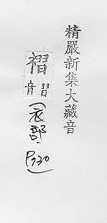 精嚴新集大藏音
褶
習
(衣部)